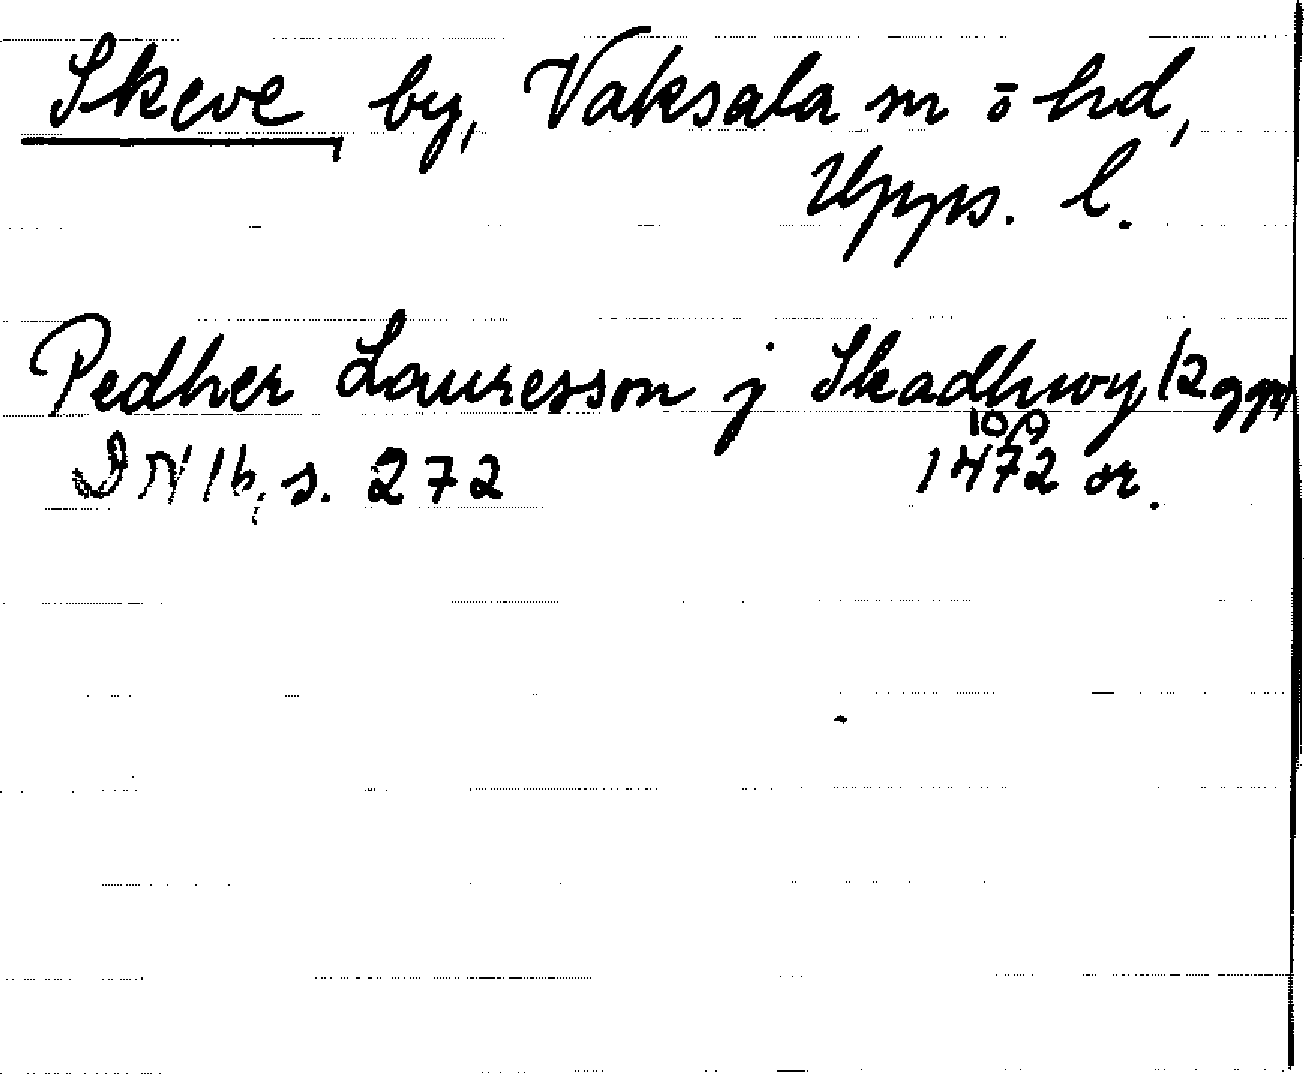 Skeve by, Vaksala sn o hd,
Upps. l.
Pedher Lauresson j Skadhwy (2 ggr)
10/9
DN 16, s. 272 1472 or.